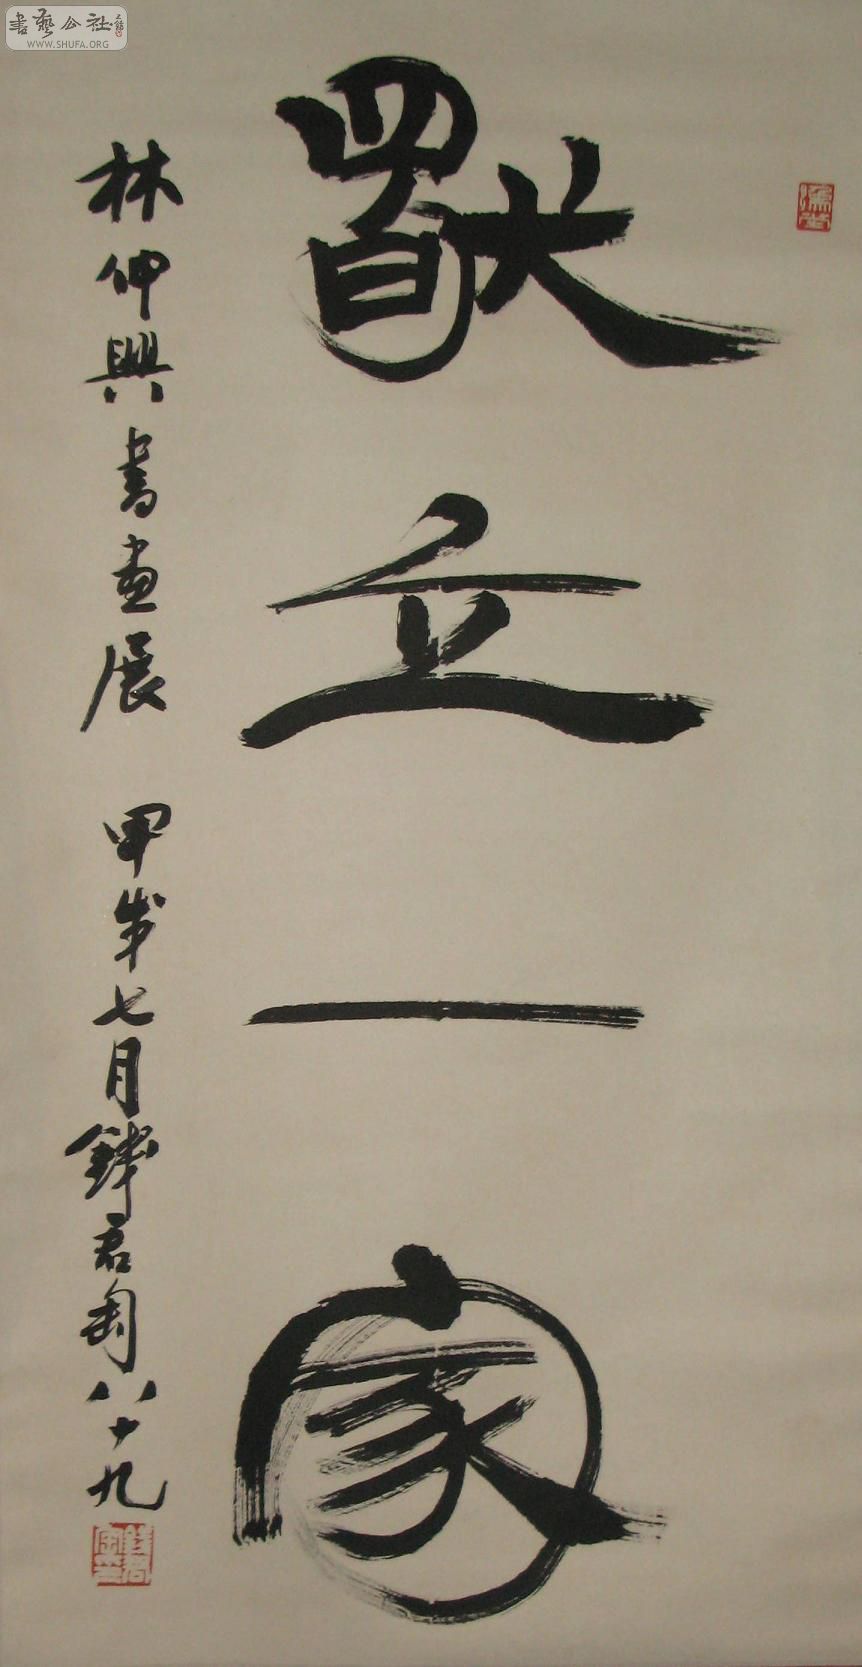 書藝公社
WWW.SHUFA.ORG
獨立一家
林仲興書畫展 甲戌七月錢君匋八十九